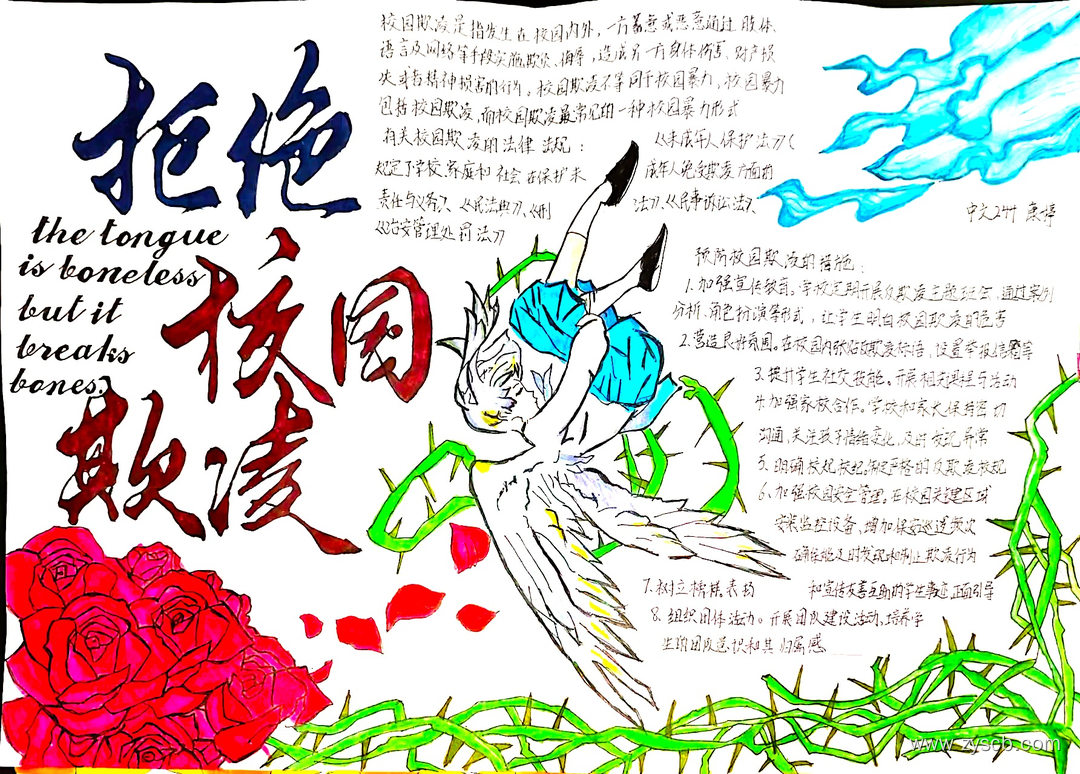 拒绝
校园
欺凌
the tongue
is boneless
but it
breaks
bones.
校园欺凌是指发生在校园内外，一方蓄意或恶意通过肢体、
语言及网络等手段实施欺负、侮辱，造成另一方身体伤害、财产损
失或者精神损害的行为。校园欺凌不等同于校园暴力，校园暴力
包括校园欺凌，而校园欺凌最常见的一种校园暴力形式
有关校园欺凌的法律法规：《未成年人保护法》（
规定了学校、家庭和社会在保护未成年人免受欺凌方面的
责任与义务》、《民法典》、《刑法》、《民事诉讼法》、
《治安管理处罚法》
中文2411 康婷
预防校园欺凌的措施：
1.加强宣传教育。学校定期开展反欺凌主题班会，通过案例
分析、角色扮演等形式，让学生明白校园欺凌的危害
2.营造良好氛围。在校园内张贴反欺凌标语，设置举报信箱等
3.提升学生社交技能。开展相关课程与活动
4.加强家校合作。学校和家长保持密切
沟通，关注孩子情绪变化，及时发现异常
5.明确校规校纪，制定严格的反欺凌校规
6.加强校园安全管理，在校园关键区域
安装监控设备、增加保安巡逻频次
确保能及时发现和制止欺凌行为
7.树立榜样表扬和宣传友善互助的学生事迹，正面引导
8.组织团体活动。开展团队建设活动，培养学
生的团队意识和其归属感
www.zyscb.com